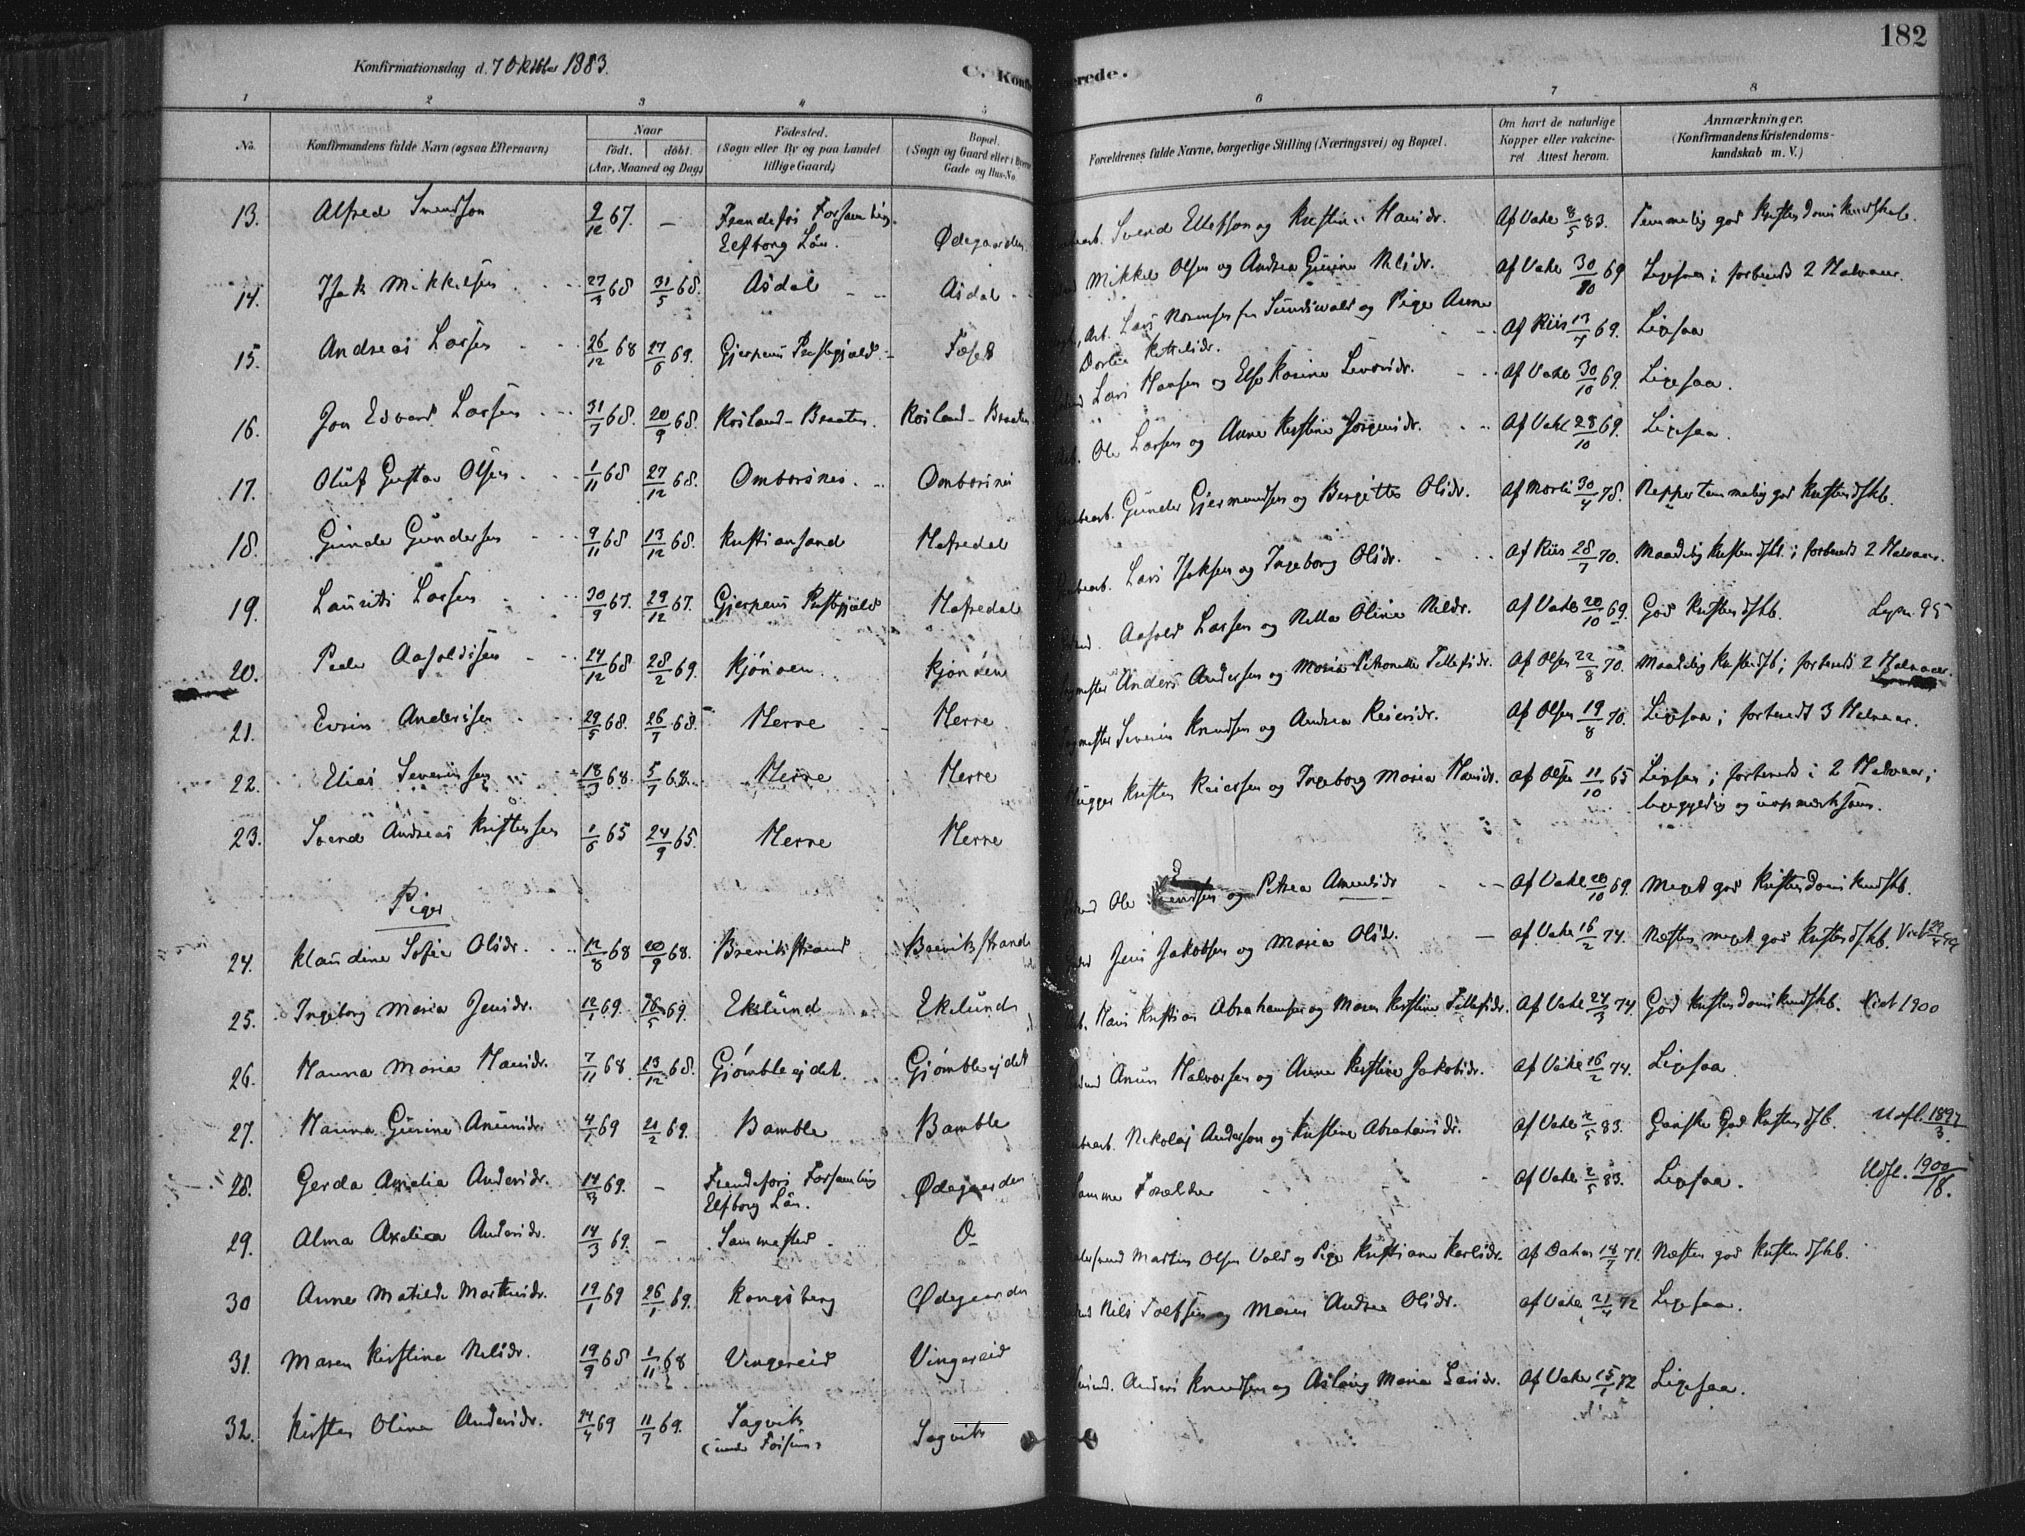 182
Konfirmationsdag d. 7 Oktober 1883.
C. Konfir erede.
1 2 3 4 5 6 7 8
No. Konfirmandens fulde Navn (ogsaa Efternavn) Naar født. døbt. (Aar, Maaned og Dag) Födested. (Sogn eller By og paa Landet tillige Gaard) Bopæl. (Sogn og Gaard eller i Byerne Gade og Hus-No. Forældrenes fulde Navne, borgerlige Stilling (Næringsvei) og Bopæl. Om havt de naturlige Kopper eller vakcineret. Attest herom. Anmærkninger. (Konfirmandens Kristendomskundskab m. V.)
13. Alfred Svendsen 9/12 67. — Frendefors Forsamling. Elfborg Län. Ødegaarden Svend Ellefson og Kristine Hansdr. Af Vahl 8/5 83. Temmelig god Kristendomskundskab.
14. Isak Mikkelsen 27/3 68 31/5 68. Åsdal Åsdal Mikkel Olsen og Andrea Gurine Nilsdr. Af Vahl 30/10 69 Ligesaa; forbered 2 Halvaar
15. Andreas Larsen 26/12 68 27/6 69. Gjerpens Prestegjæld Fosse Lars fra Sundsvald og Pige Anne Dortea Kittilsdr. Af Riis 13/7 69. Ligesaa
16. Jon Edvard Larsen 31/7 68. 20/9 68. Rosland-Braaten. Rosland-Braaten Lars Hansen og Else Karine Sevrinsdr. Af Vahl 30/10 69. Ligesaa.
17. Oluf Gustav Olsen 1/11 68 27/12 68. Omborsnes. Omborsnes Ole Larsen og Anne Kirstine Jørgensdr. Af Vahl 28/10 69. Ligesaa.
18. Gunder Gundersen 9/11 68 13/12 68. Kristiansand Hafredal Gunder Gjermundsen og Bergitte Olsdr. Af 30/4 78. Neppe temmelig god Kristendskb.
19. Laurits Larsen 30/9 67. 29/12 67. Gjerpens Prestegjæld Hafredal Lars Isaksen og Ingeborg Olsdr. Af Riis 28/7 70. Maadelig Kristendskb.; forbered 2 Halvaar.
20. Peder Aasoldsen 24/12 68 28/2 69. Kjønøen. Kjønøen Aasold Larsen og Nella Oline Nilsdr. Af Vahl 20/10 69. God Kristendskb.
21. Evin Andersen 29/5 68. 26/7 68. Herre Herre Anders Andersen og Maria Petronelle Tollefsdr. Af Olsen 22/8 70. Maadelig Kristendskb; forbered 2 Halvaar.
22. Elias Severinsen 18/3 68. 5/7 68. Herre Herre Severin Knudsen og Andrea Reiersdr. Af Olsen 19/8 70. Ligesaa; forberedt 3 Halvaar.
23. Svend Andreas Kristensen 1/6 65 24/9 65. Herre Herre Kristen Reiersen og Ingeborg Maria Hansdr. Af Olsen 11/10 65 Ligesaa; forbered i 2 Halvaar; ligegyldig og uopmerksom.
Piger
24. Klaudine Sofie Olsdr. 12/8 68 20/9 68. Brevikstrand Brevikstrand Ole og Petrea Amundsdr Af Vahl 20/10 69. Meget god Kristendomskundskb.
25. Ingeborg Maria Jensdr. 12/1 69. 16/5 69. Eklund Eklund Jens Jakobsen og Maria Olsdr. Af Vahl 16/2 74. Næsten meget god Kristendskb.
26. Hanna Maria Hansdr. 7/11 68. 13/12 68. Gjømblejdet. Gjømblejdet Hans Kristian Abrahamsen og Maren Kirstine Tollefsdr. Af Vahl 24/3 74. God Kristendomskundskb. Viet 1900
27. Hanna Gurine Anundsdr. 4/1 69 21/2 69. Bamble Bamble Anun Halvorsen og Anne Kirstine Jakobsdr. Af Vahl 16/2 74. Ligesaa
28. Gerda Amelia Andersdr. 14/3 69. — Frendefors Forsamling Elfborg Län. Ødegaarden Nikolaj Anderson og Kristine Abrahamsdr. Af Vahl 2/5 83. Ganske God Kristendskb. Udfl. 1897/3.
29. Alma Axelia Andersdr. 14/3 69. — Sammested. Samme Forældre Af Vahl 2/5 83. Ligesaa. Udfl. 1900/18.
30 Anne Matilde Martinsdr. 19/1 69 26/1 69. Kongsberg Ødegaarden Martin Olsen Vold og Pige Kristiane Karlsdr. Af 18/7 71. Næsten god Kristendskb.
31. Maren Kirstine Nilsdr. 19/9 68 1/11 68 Vingereid Vingereid Nils Tolfsen og Maren Andrea Olsdr. Af Vahl 21/4 72 Ligesaa.
32. Kirsten Oline Andersdr. 24/4 69 11/7 69. Sagvik (under Fossum) Sagvik Anders Knudsen og Aslaug Maria Larsdr. Af Vahl 15/1 72 Ligesaa.